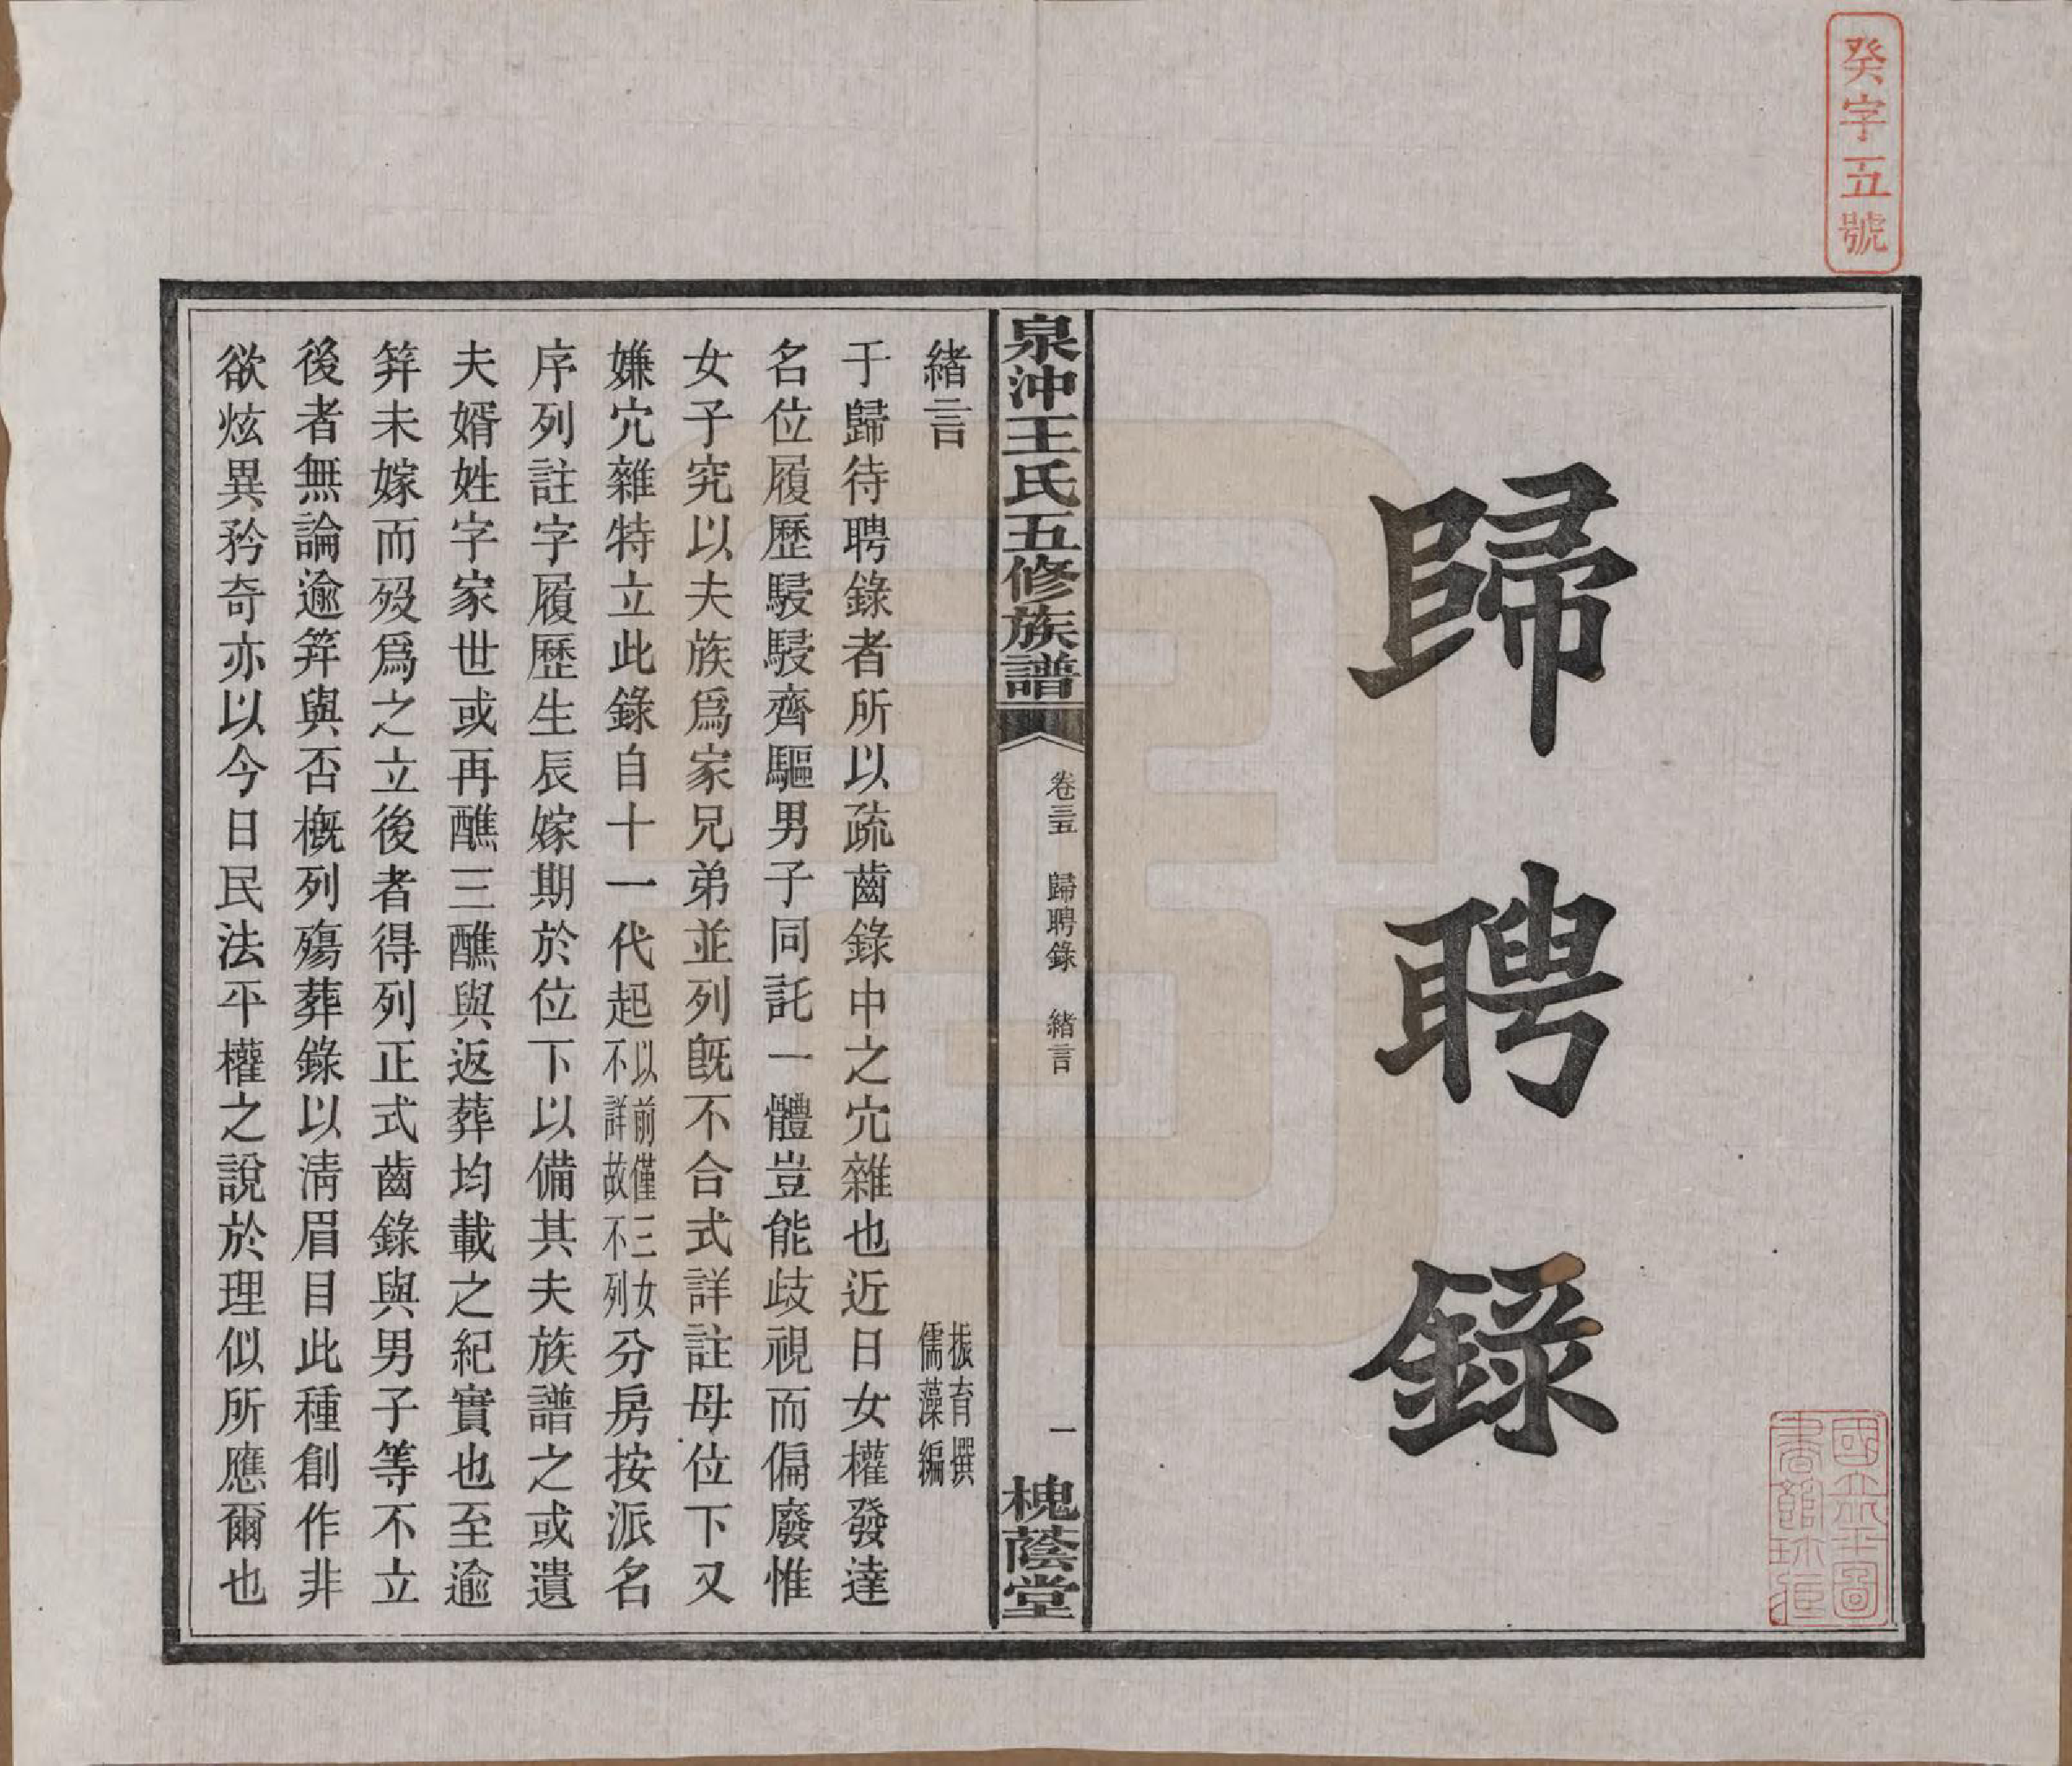 癸字五號
歸聘錄
國立北平圖書館珍藏
泉沖王氏五修族譜
卷三五 歸聘錄 緒言
一
槐蔭堂
緒言
振育撰
儒藻編
于歸待聘錄者所以疏齒錄中之宂雜也近日女權發達
名位履歷駸駸齊驅男子同託一體豈能歧視而偏廢惟
女子究以夫族爲家兄弟並列旣不合式詳註母位下又
嫌宂雜特立此錄自十一代起以前僅三女不詳故不列分房按派名
序列註字履歷生辰嫁期於位下以備其夫族譜之或遺
夫婿姓字家世或再醮三醮與返葬均載之紀實也至逾
笄未嫁而歿爲之立後者得列正式齒錄與男子等不立
後者無論逾笄與否槪列殤葬錄以淸眉目此種創作非
欲炫異矜奇亦以今日民法平權之說於理似所應爾也